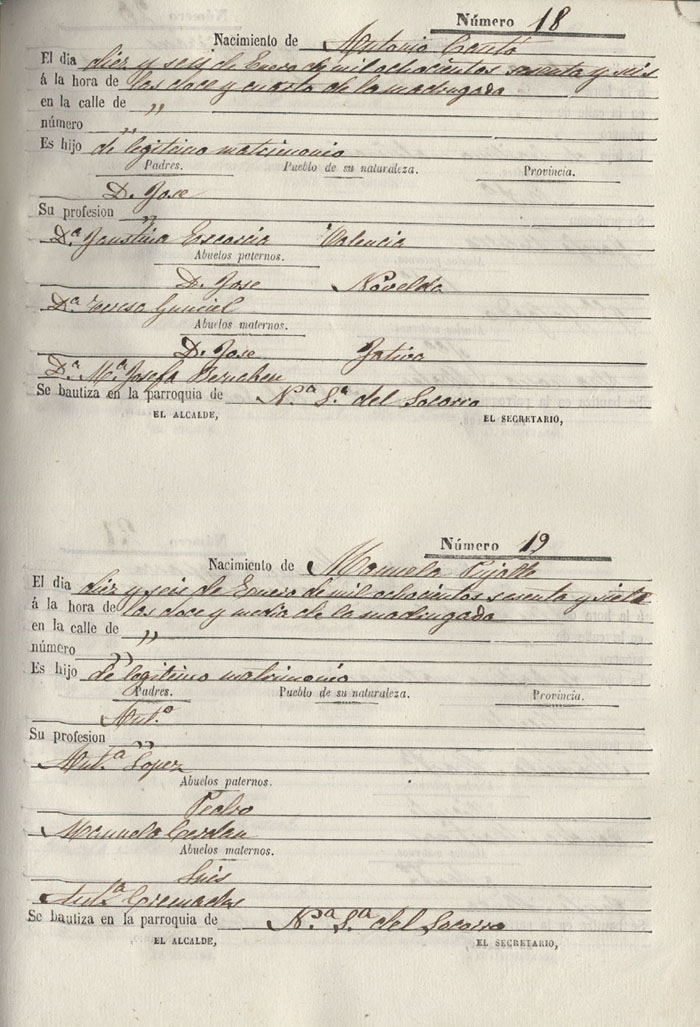 Número 18
Nacimiento de Antonio Cantó
El dia diez y seis de Enero de mil ochocientos sesenta y seis
á la hora de las doce y cuarto de la madrugada
en la calle de "
número "
Es hijo de legitimo matrimonio
Padres. Pueblo de su naturaleza. Provincia.
D. Jose
Su profesion "
Dª Faustina Escorcia Valencia
Abuelos paternos.
D. Jose Novelda
Dª Teresa
Abuelos maternos.
D. Jose Jativa
Dª Mª Josefa
Se bautiza en la parroquia de Nª Sª del Socorro
EL ALCALDE, EL SECRETARIO,
Número 19
Nacimiento de Manuela Pujalte
El dia diez y seis de Enero de mil ochocientos sesenta y siete
á la hora de las doce y media de la madrugada
en la calle de "
número "
Es hijo de legitimo matrimonio
Padres. Pueblo de su naturaleza. Provincia.
Antº
Su profesion "
Antª Lopez
Abuelos paternos.
Pedro
Manuela Cerdan
Abuelos maternos.
Luis
Antª Granados
Se bautiza en la parroquia de Nª Sª del Socorro
EL ALCALDE, EL SECRETARIO,